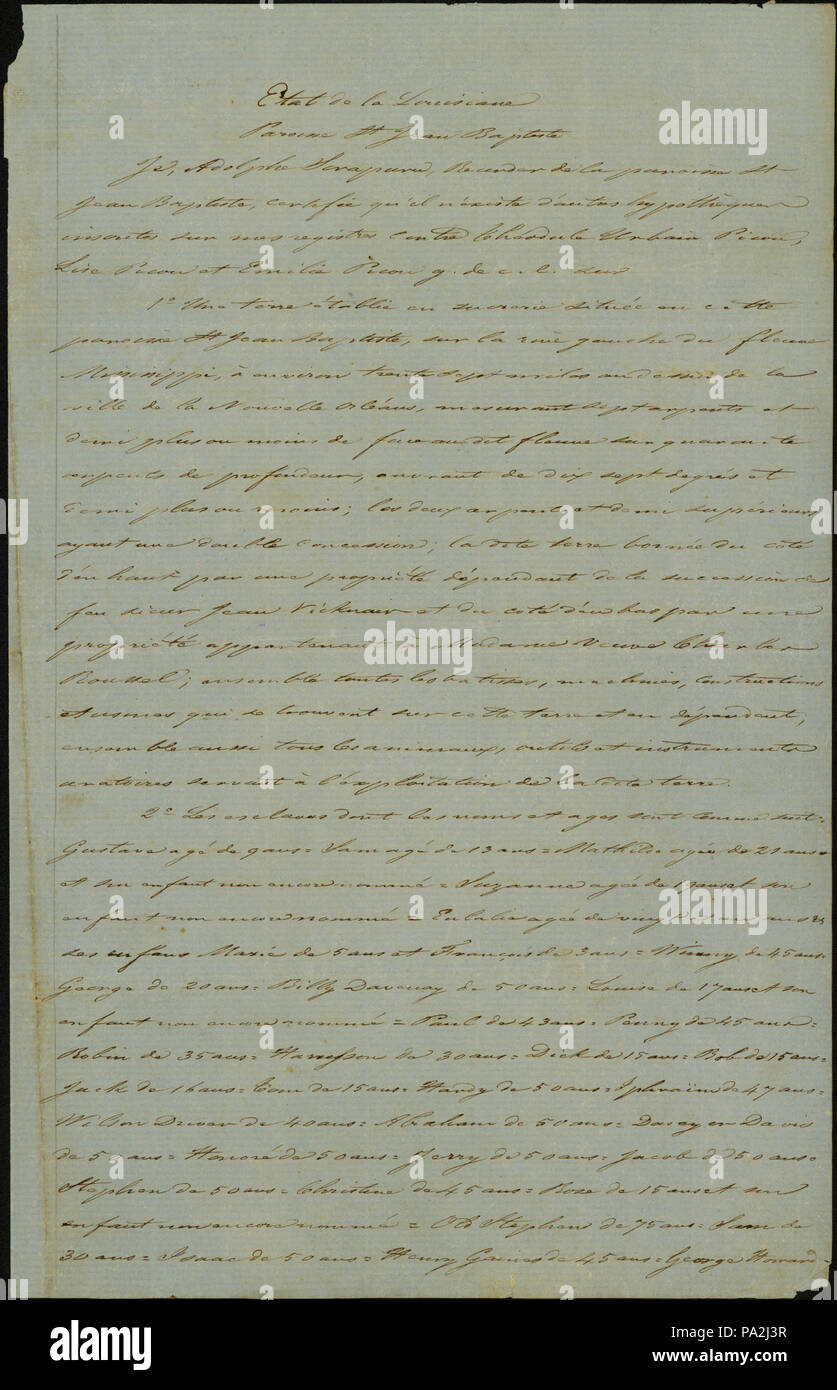 Etat de la Louisiane
Paroisse St Jean Baptiste
Je, Adolphe Sorapuru, Recorder de la paroisse St
Jean Baptiste, certifie qu'il n'existe d'autres hypothèques
inscrites sur mes registres contre Théodule Urbain Picou,
Lise Picou et Emilie Picou g. de c. l. sur
1º Une terre établie en sucrerie située en cette
paroisse St Jean Baptiste, sur la rive gauche du fleuve
Mississippi, à environ trente sept milles au dessus de la
ville de la Nouvelle Orléans, mesurant sept arpents et
demi plus ou moins de face au dit fleuve sur quarante
arpents de profondeur, ouvrant de dix sept degrés et
demi plus ou moins; les deux arpents et demi supérieurs
ayant une double concession; la dite terre bornée du côté
d'en haut par une propriété dépendant de la succession de
feu sieur Jean Vicknair et du coté d'en bas par une
propriété appartenant à Madame Veuve
Roussel; ensemble toutes les batisses, machines, constructions
et usines qui se trouvent sur cette terre et en dépendent,
ensemble aussi tous les animaux, outils et instruments
aratoires servant à l'exploitation de la dite terre.
2º Les esclaves dont les noms et ages sont comme suit:
Gustave agé de 9 ans = Sam agé de 13 ans = Mathilde agée de 21 ans
et son enfant non encore nommé = Suzanne agée de et son
enfant non encore nommé = Eulalie agée de ans &
ses enfans Marie de 5 ans et François de 3 ans = Winny de 45 ans =
George de 20 ans = Billy Davenay de 50 ans = Louise de 17 ans et son
enfant non encore nommé = Paul de 43 ans = Penny de 45 ans =
Robin de 35 ans = Hampson de 30 ans = Dick de 15 ans = Bob de 15 ans =
Jack de 16 ans = Tom de 15 ans = Hardy de 50 ans = Iphraim de 47 ans =
Wilson Driver de 40 ans = Abraham de 50 ans = Dasey or Davis
de 5 ans = Honoré de 50 ans = Jerry de 50 ans = Jacob de 50 ans =
Stephen de 50 ans = Christine de 45 ans = Rose de 15 ans et son
enfant non encore nommé = Old Stephens de 75 ans = Sam de
30 ans = Isaac de 50 ans = Henry Gaines de 45 ans = George Howard
alamy
Image ID: PA2J3R
www.alamy.com